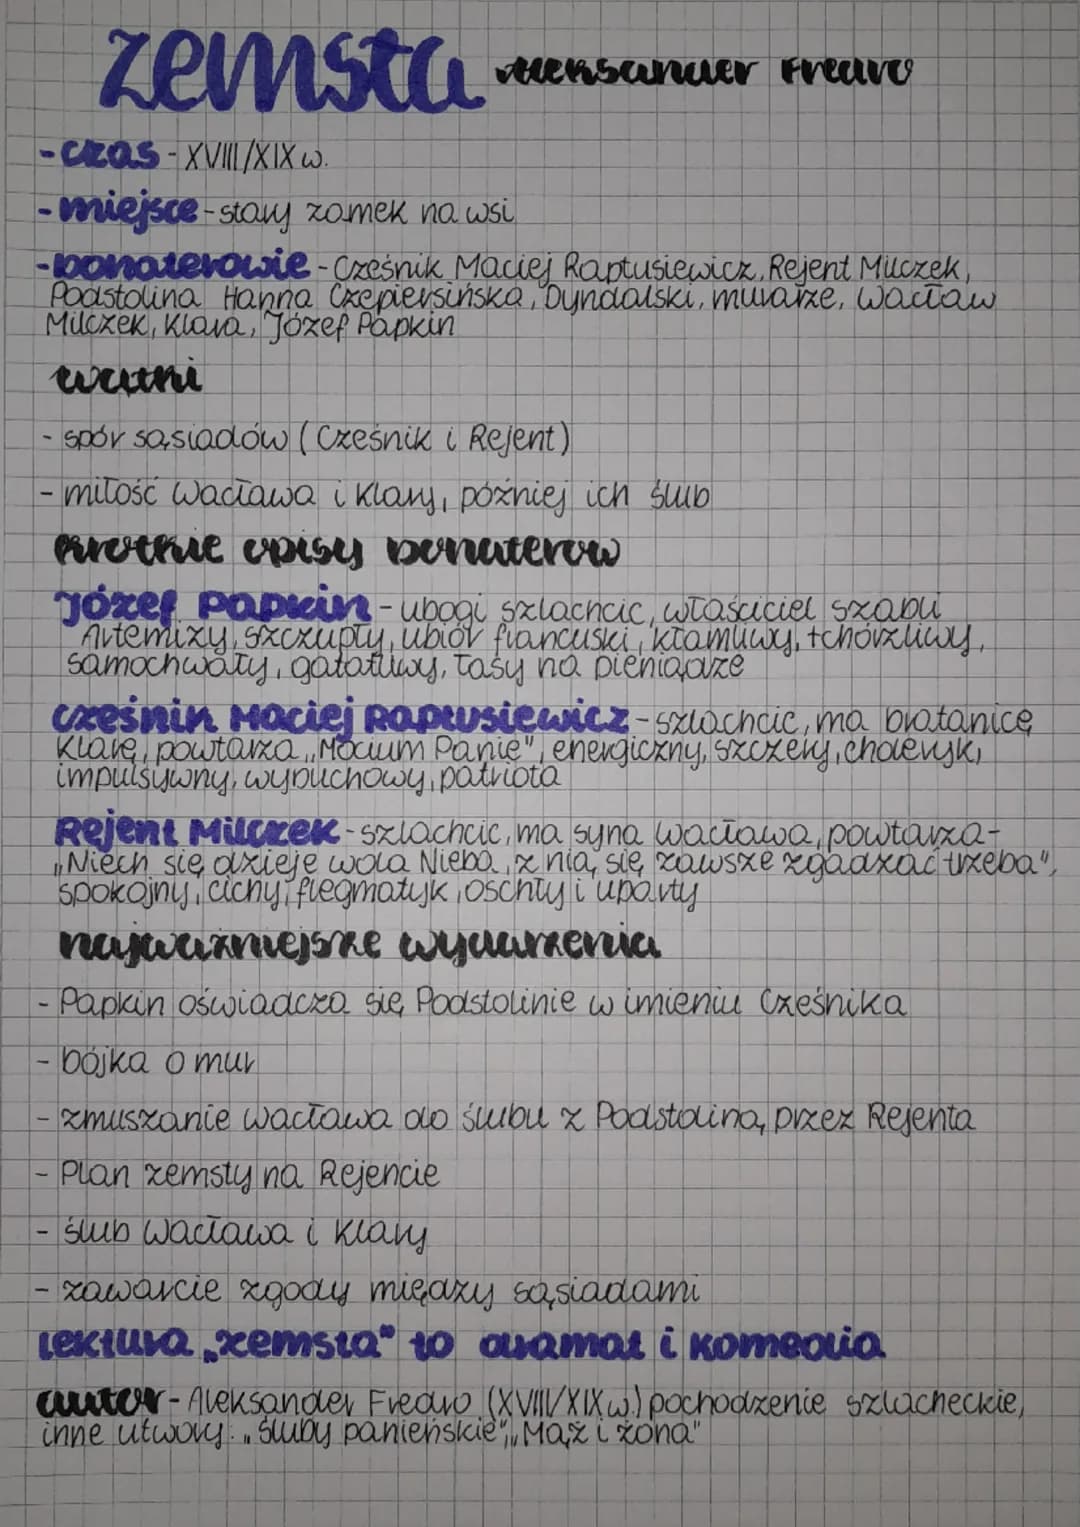 Zemsta Aleksander Fredro
- czas - XVIII/XIX w.
- miejsce - stary zamek na wsi
- bohaterowie - Cześnik Maciej Raptusiewicz, Rejent Milczek,
Podstolina Hanna Czepiersińska, Dyndalski, murarze, Wacław
Milczek, Klara, Józef Papkin
wątki
- spór sąsiadów (Cześnik i Rejent)
- miłość Wacława i Klary, później ich ślub
krótkie opisy bohaterów
Józef Papkin - ubogi szlachcic, właściciel szabli
Artemizy, szczupły, ubiór francuski, kłamliwy, tchórzliwy,
samochwały, gadatliwy, łasy na pieniądze
Cześnik Maciej Raptusiewicz - szlachcic, ma bratanicę
Klarę, powtarza „Mocium Panie", energiczny, szczery, choleryk,
impulsywny, wybuchowy, patriota
Rejent Milczek - szlachcic, ma syna Wacława, powtarza -
„Niech się dzieje wola Nieba, z nią się zawsze zgadzać trzeba",
spokojny, cichy, flegmatyk, oschły i uparty
najważniejsze wydarzenia
- Papkin oświadcza się Podstolinie w imieniu Cześnika
- bójka o mur
- zmuszanie Wacława do ślubu z Podstoliną przez Rejenta
- Plan zemsty na Rejencie
- ślub Wacława i Klary
- zawarcie zgody między sąsiadami
Lektura „Zemsta" to dramat i komedia
autor - Aleksander Fredro (XVIII/XIX w.) pochodzenie szlacheckie,
inne utwory: „Śluby panieńskie", „Mąż i żona"